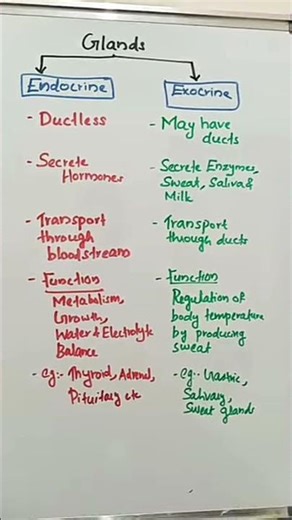 Glands
Endocrine
- Ductless
- Secrete
Hormones
- Transport
through
bloodstream
- Function
Metabolism,
Growth,
Water & Electrolyte
Balance
- eg:- Thyroid, Adrenal,
Pituitary etc
Exocrine
- May have
ducts
- Secrete Enzymes,
Sweat, Saliva &
Milk
- Transport
through ducts
- Function
Regulation of
body temperature
by producing
sweat
- eg:- Gastric,
Salivary,
Sweat glands